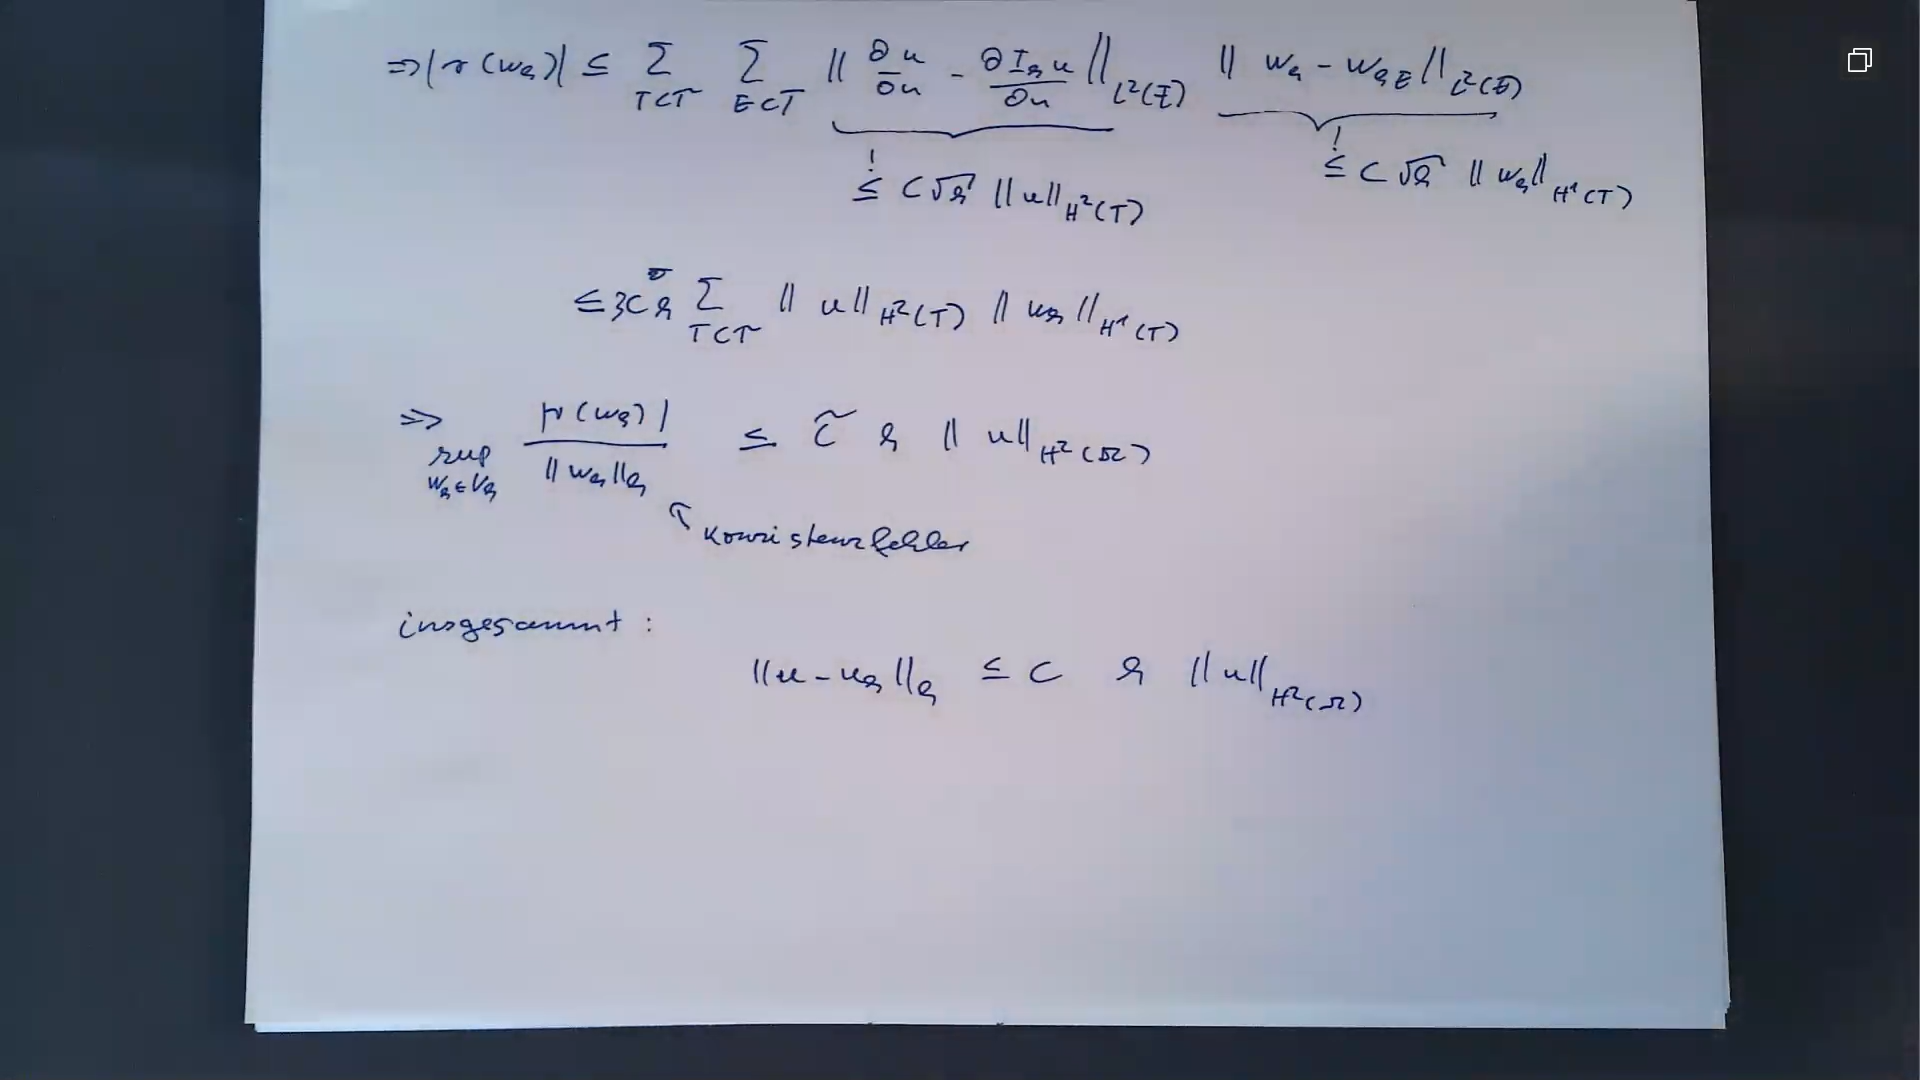 ⇒ |r(w_h)| ≤ Σ_{T⊂𝒯} Σ_{E⊂T} ‖ ∂u/∂n − ∂I_h u/∂n ‖_{L²(E)} ‖ w_h − w_{hE} ‖_{L²(E)}
! ≤ C√h ‖u‖_{H²(T)} ! ≤ C√h ‖w_h‖_{H¹(T)}
≤ 3C h Σ_{T⊂𝒯} ‖u‖_{H²(T)} ‖u_h‖_{H¹(T)}
⇒ sup_{w_h∈V_h} |r(w_h)| / ‖w_h‖_h ≤ C̃ h ‖u‖_{H²(Ω)}
Konsistenzfehler
insgesammt :
‖u − u_h‖_h ≤ C h ‖u‖_{H²(Ω)}